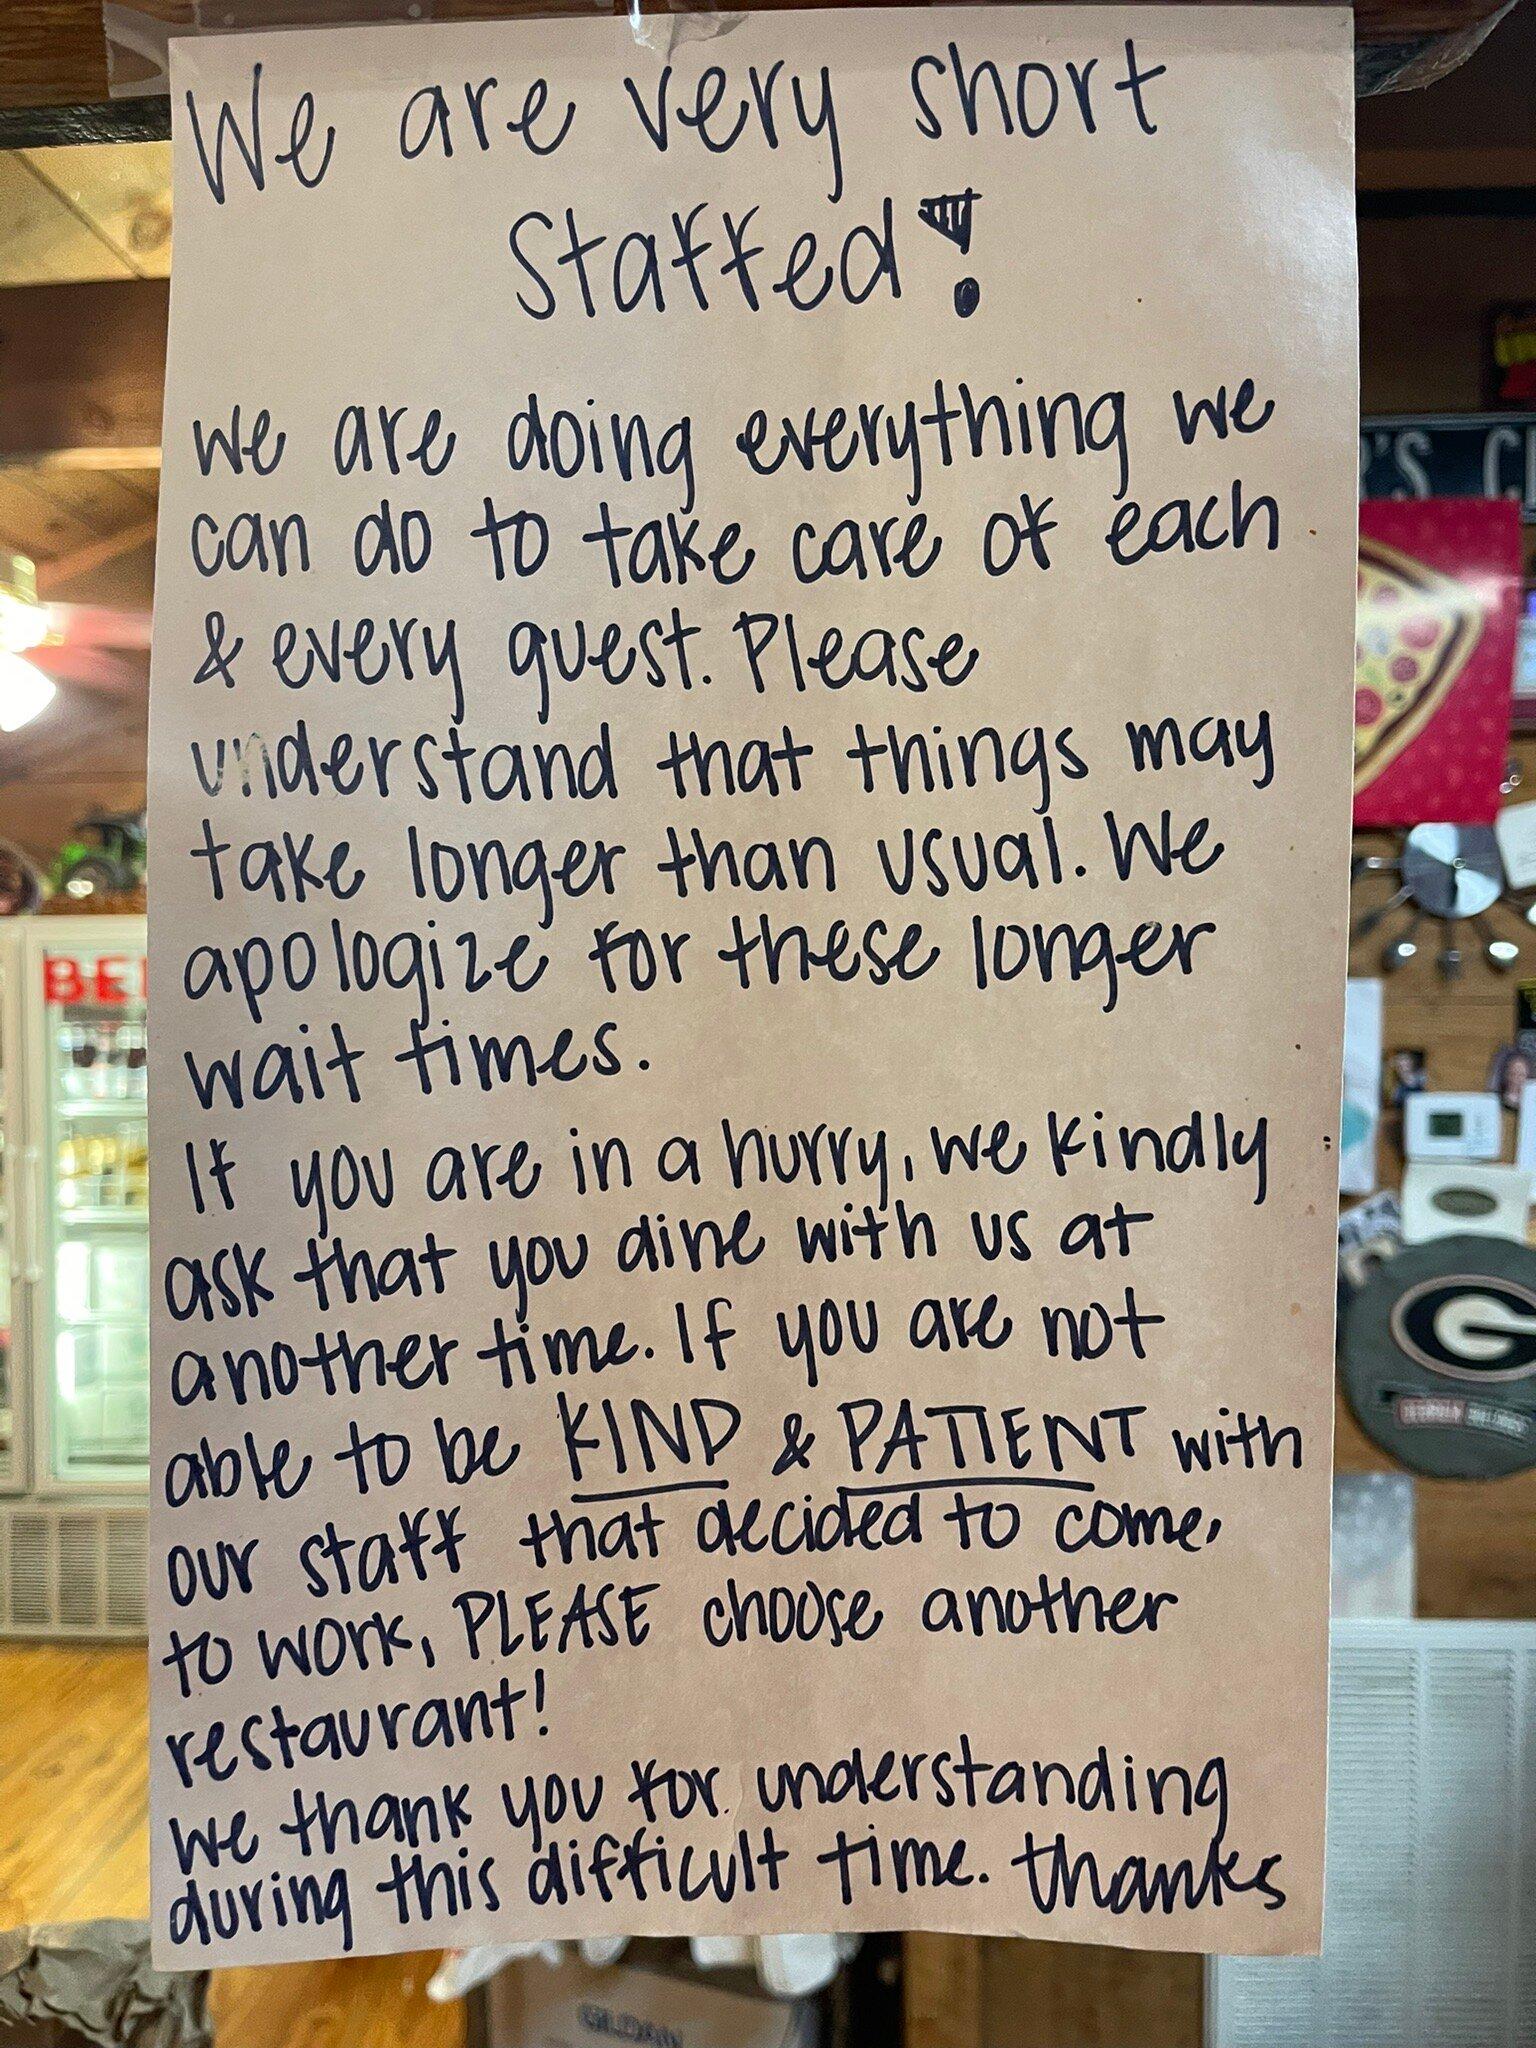 We are very short
Staffed!
we are doing everything we
can do to take care of each
& every guest. Please
understand that things may
take longer than usual. We
apologize for these longer
wait times.
If you are in a hurry, we kindly
ask that you dine with us at
another time. If you are not
able to be KIND & PATIENT with
our staff that decided to come,
to work, PLEASE choose another
restaurant!
We thank you for understanding
during this difficult time. thanks
BE
'S C
G
GILDAN